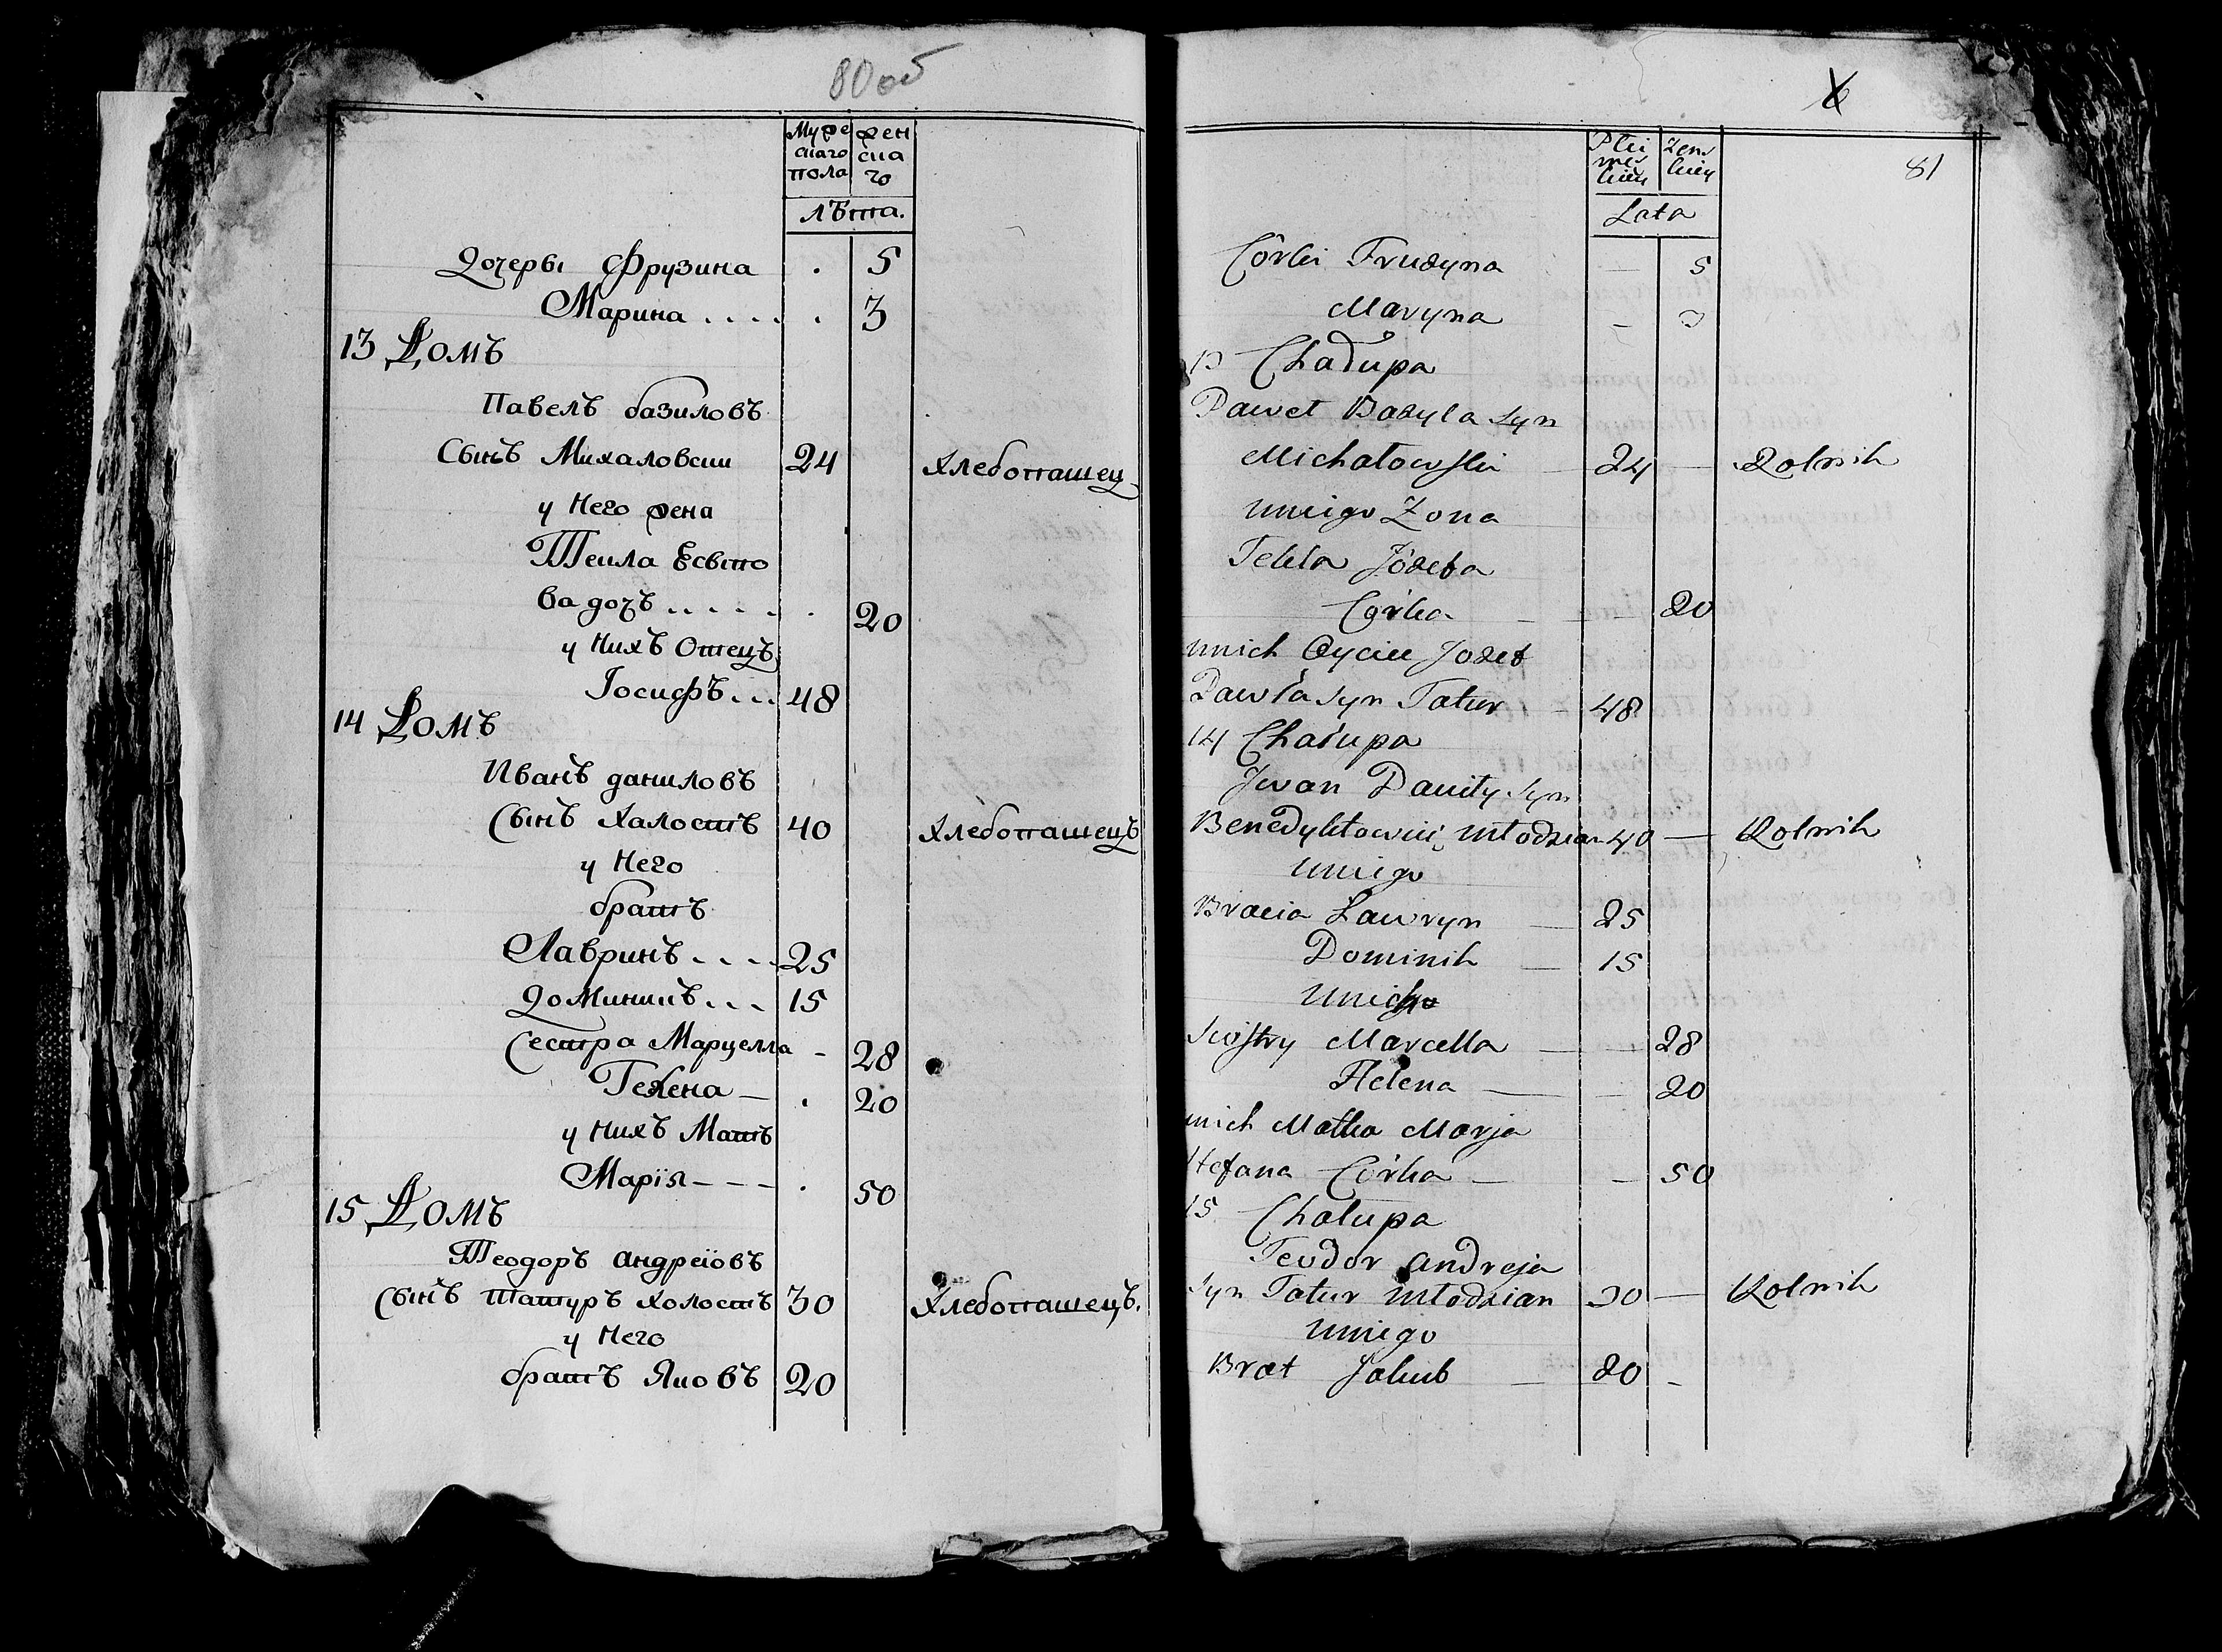 80 об
Муже женска
скаго го
пола
лѣта.
Дочеры Фрузина . 5
Марина . . . . . 3
13 Домъ
Павелъ базиловъ
Сынъ Михаловски 24 Хлебопашец
у него жена
Текла Есвпо
ва дочъ . . . . . . 20
у нихъ Отецъ
Іосифъ . . . 48
14 Домъ
Иванъ даниловъ
Сынъ Халостъ 40 Хлебопашецъ
у него
братъ
Лавринъ . . . . 25
Доминикъ . . . 15
Сестра Марцелла - 28
Гелена — . 20
у нихъ Матъ
Марія - - - . 50
15 Домъ
Теодоръ андреіовъ
Сынъ татуръ холостъ 30 Хлебопашецъ.
у него
братъ Яковъ 20
6
81
Płci Żens
męs kiey
kiey
Lata
Córki Fruzyna — 5
Maryna - 3
13 Chałupa
Paweł Bazyla Syn
Michałowski — 24 — Rolnik
uniego Żona
Tekla Józefa
Córka — — 20
unich Oyciec Józef
Pawła Syn Tatur — 48
14 Chałupa
Jwan Daniły Syn
Benedyktowicz młodzian 40 — Rolnik
uniego
Bracia Ławryn — 25
Dominik — 15
unich
Siostry Marcella — — 28
Helena — — 20
unich Matka Marja
Stefana Córka — — 50
15 Chałupa
Teodor Andreja
Syn Tatur młodzian 30 — Rolnik
uniego
Brat Jakub — 20 -